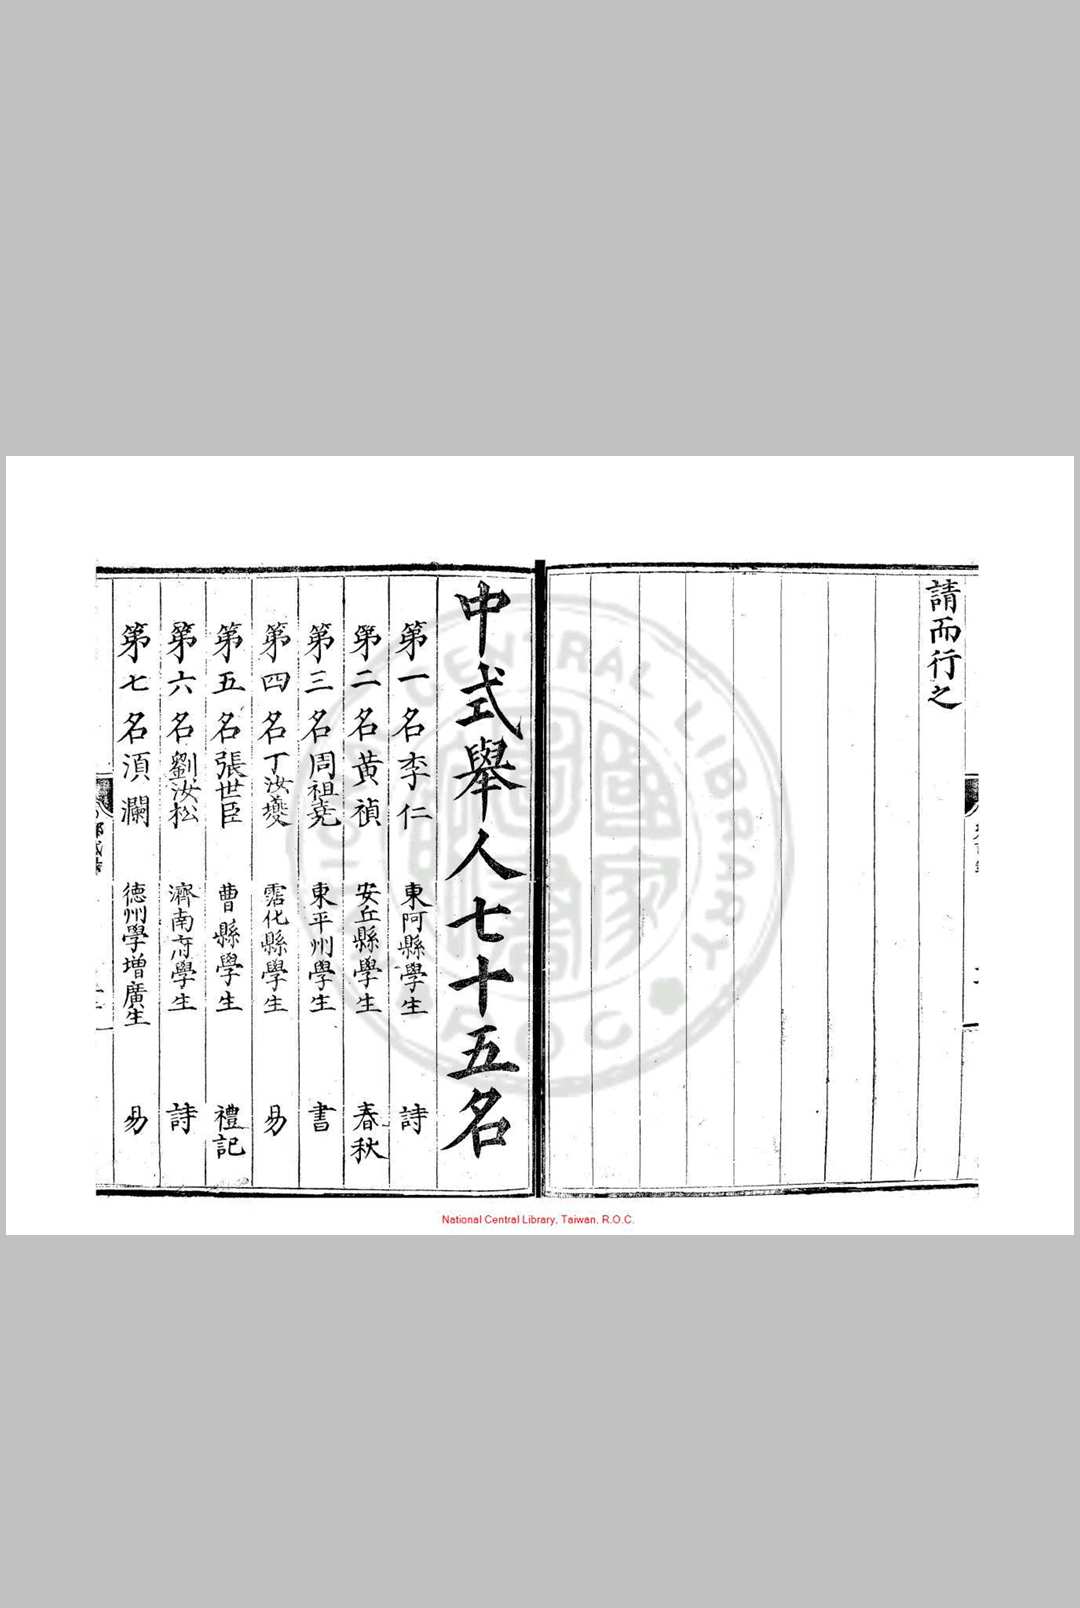 請而行之
中式舉人七十五名
第一名李仁 東阿縣學生 詩
第二名黃禎 安丘縣學生 春秋
第三名周祖堯 東平州學生 書
第四名丁汝夔 霑化縣學生 易
第五名張世臣 曹縣學生 禮記
第六名劉汝松 濟南府學生 詩
第七名須瀾 德州學增廣生 易
National Central Library, Taiwan, R.O.C.
CENTRAL LIBRARY
R.O.C.